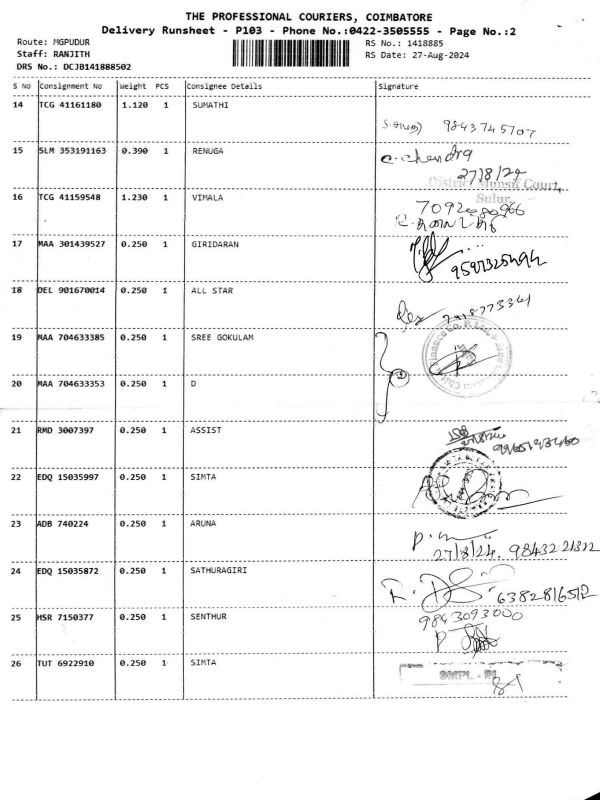 THE PROFESSIONAL COURIERS, COIMBATORE
Delivery Runsheet - P103 - Phone No.:0422-3505555 - Page No.:2
Route: MGPUDUR
RS No.: 1418885
Staff: RANJITH
RS Date: 27-Aug-2024
DRS No.: DCJB141888502
S No Consignment No Weight PCS Consignee Details Signature
14 TCG 41161180 1.120 1 SUMATHI
9843745707
15 SLM 353191163 0.390 1 RENUGA
C. Chendra
27/8/24
District Munsif Court,
Sulur.
16 TCG 41159548 1.230 1 VIMALA
17 MAA 301439527 0.250 1 GIRIDARAN
18 DEL 901670014 0.250 1 ALL STAR
19 MAA 704633385 0.250 1 SREE GOKULAM
20 MAA 704633353 0.250 1 D
2
21 RMD 3007397 0.250 1 ASSIST
22 EDQ 15035997 0.250 1 SIMTA
23 ADB 740224 0.250 1 ARUNA
27/8/24.
24 EDQ 15035872 0.250 1 SATHURAGIRI
6382816512
25 HSR 7150377 0.250 1 SENTHUR
9843093000
26 TUT 6922910 0.250 1 SIMTA